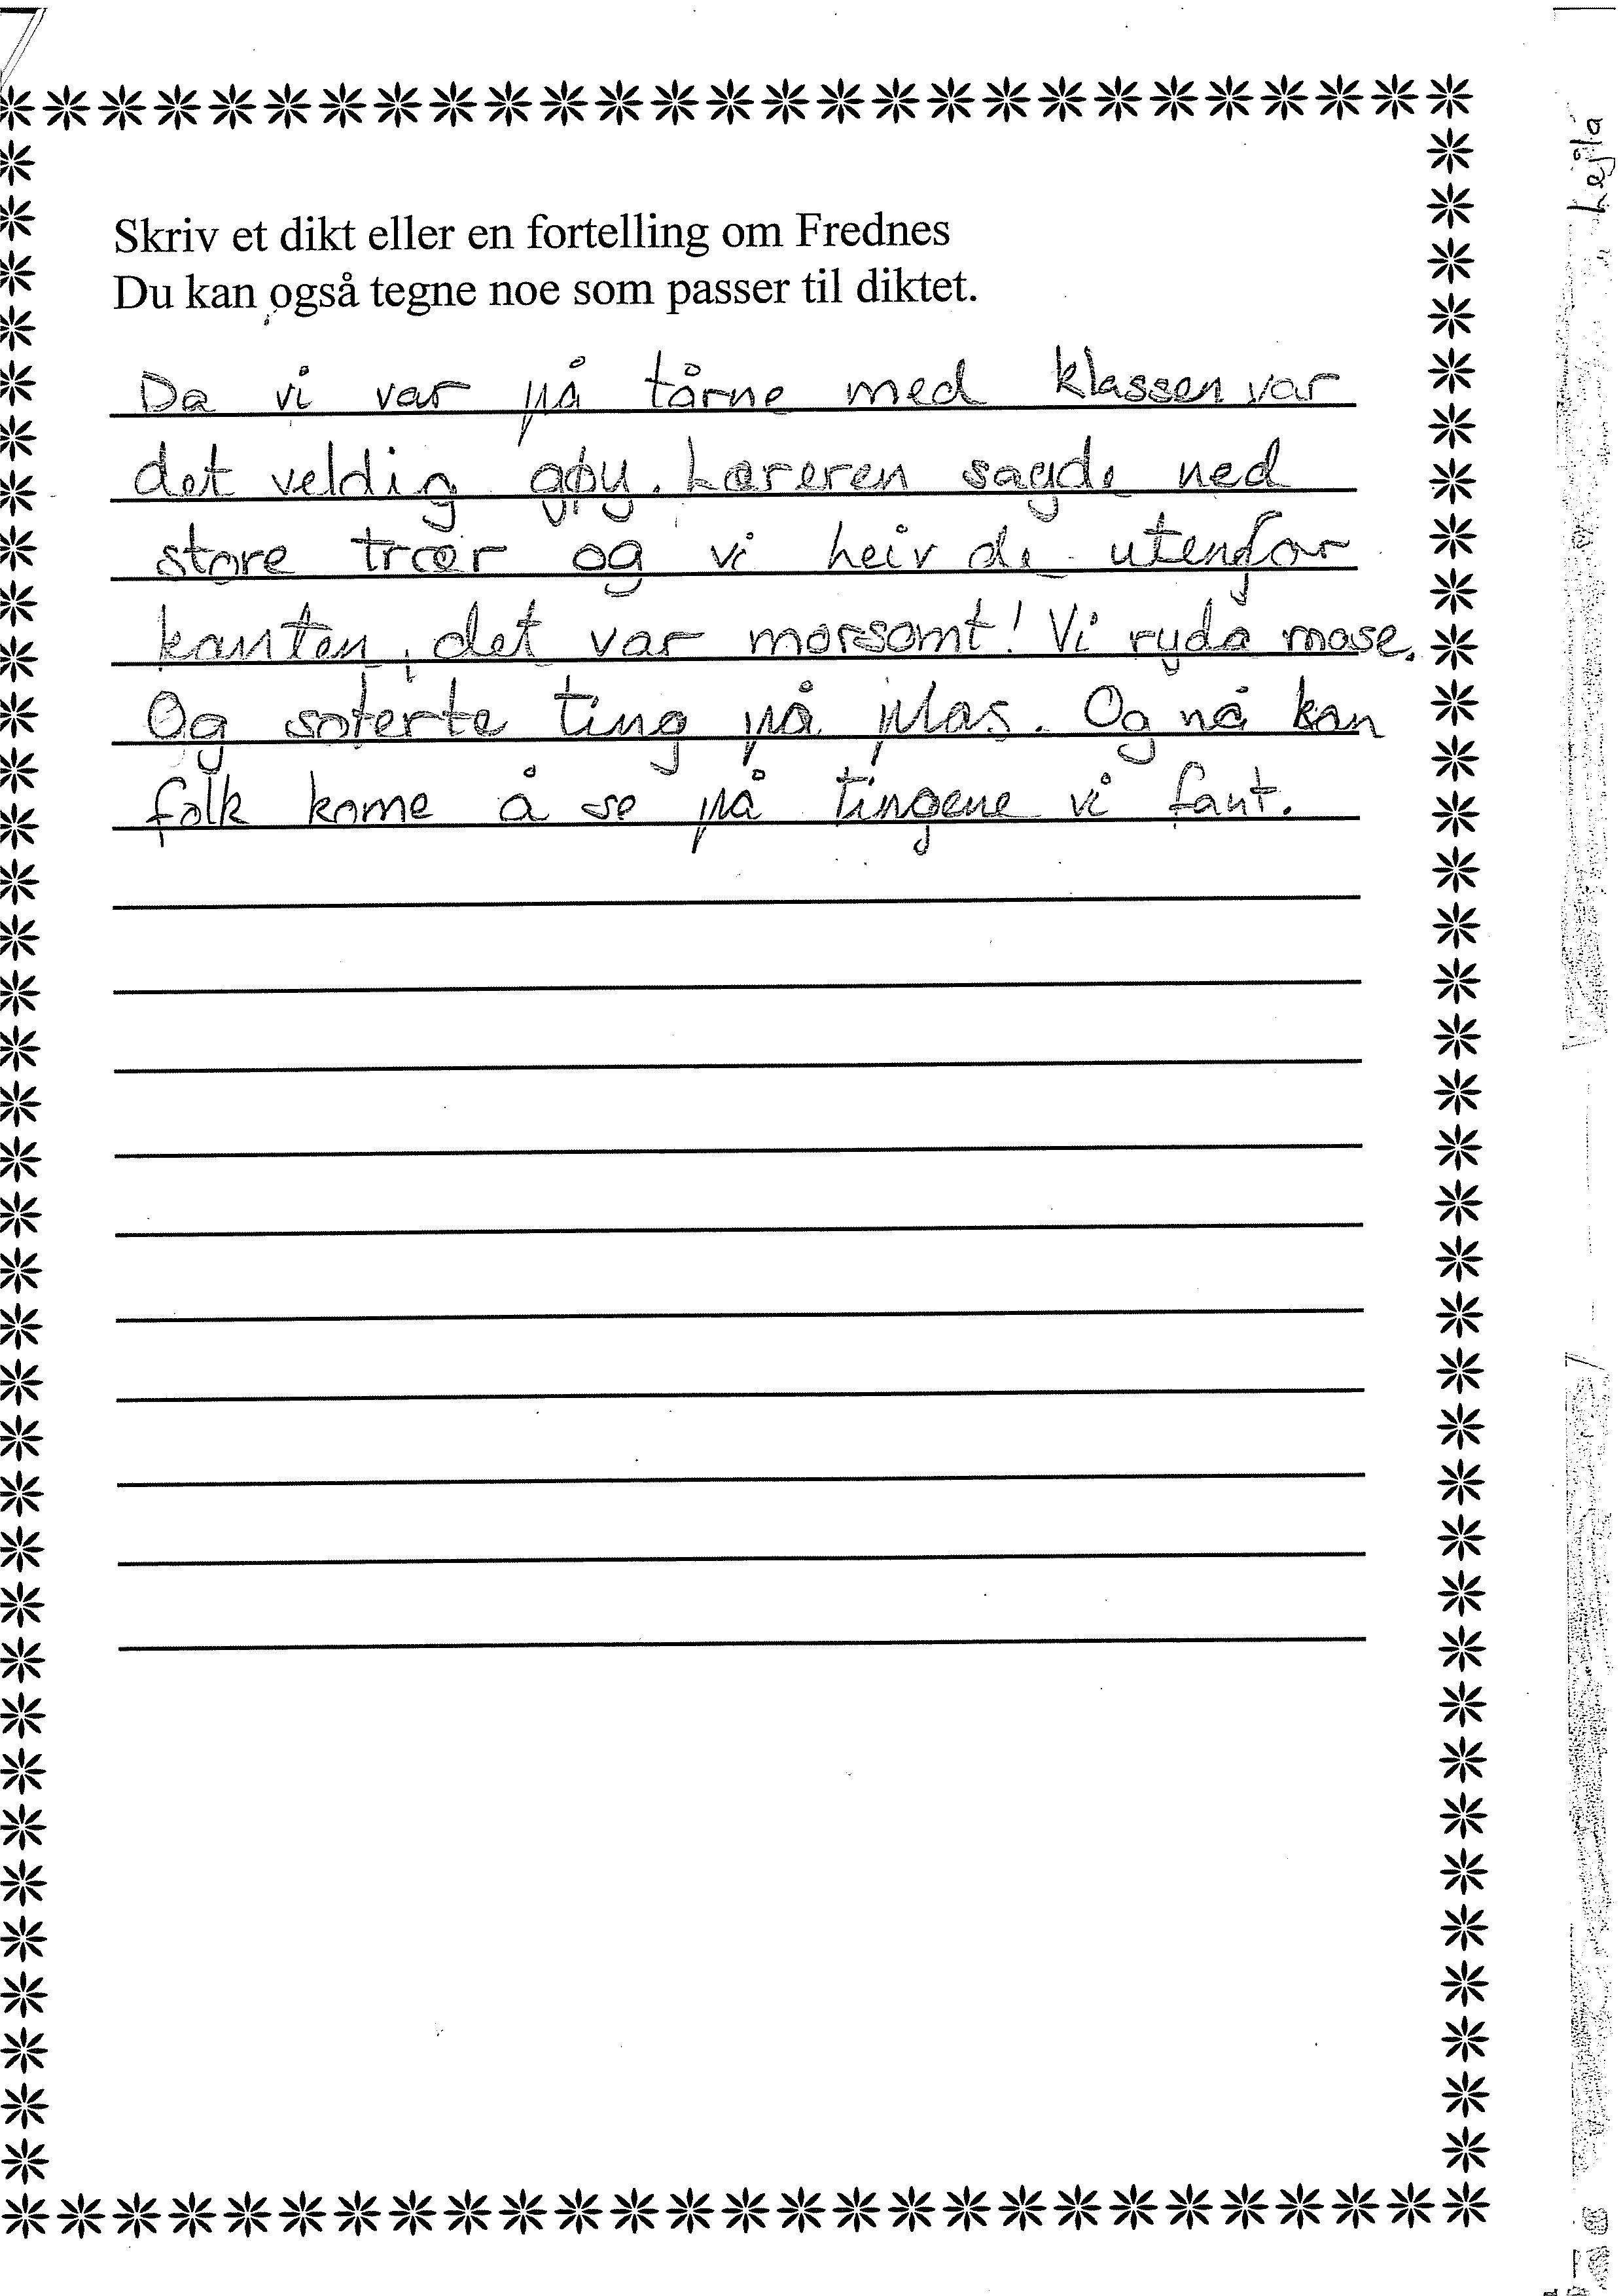 Skriv et dikt eller en fortelling om Frednes
Du kan også tegne noe som passer til diktet.
Da vi var på tårne med klassen var
det veldig gøy. Læreren sagde ned
store trær og vi heiv de utenfor
kanten, det var morsomt! Vi ryda mose.
Og soterte ting på plas. Og nå kan
folk kome å se på tingene vi fant.
Lejla